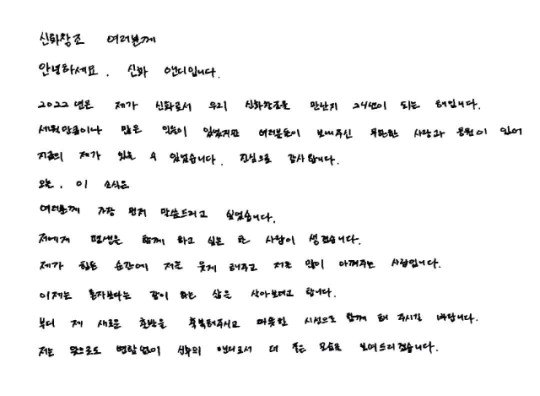 신화창조 여러분께
안녕하세요. 신화 앤디입니다.
2022년은 제가 신화로서 우리 신화창조를 만난지 24년이 되는 해입니다.
세월만큼이나 많은 일들이 있었지만 여러분들이 보내주신 무한한 사랑과 응원이 있어
지금의 제가 있을 수 있었습니다. 진심으로 감사합니다.
오늘, 이 소식은
여러분께 가장 먼저 말씀드리고 싶었습니다.
저에게 평생을 함께 하고 싶은 한 사람이 생겼습니다.
제가 힘든 순간에 저를 웃게 해주고 저를 많이 아껴주는 사람입니다.
이제는 혼자보다는 같이 하는 삶을 살아보려고 합니다.
부디 제 새로운 출발을 축복해주시고 따뜻한 시선으로 함께 해 주시길 바랍니다.
저는 앞으로도 변함없이 신화의 앤디로서 더 좋은 모습을 보여드리겠습니다.